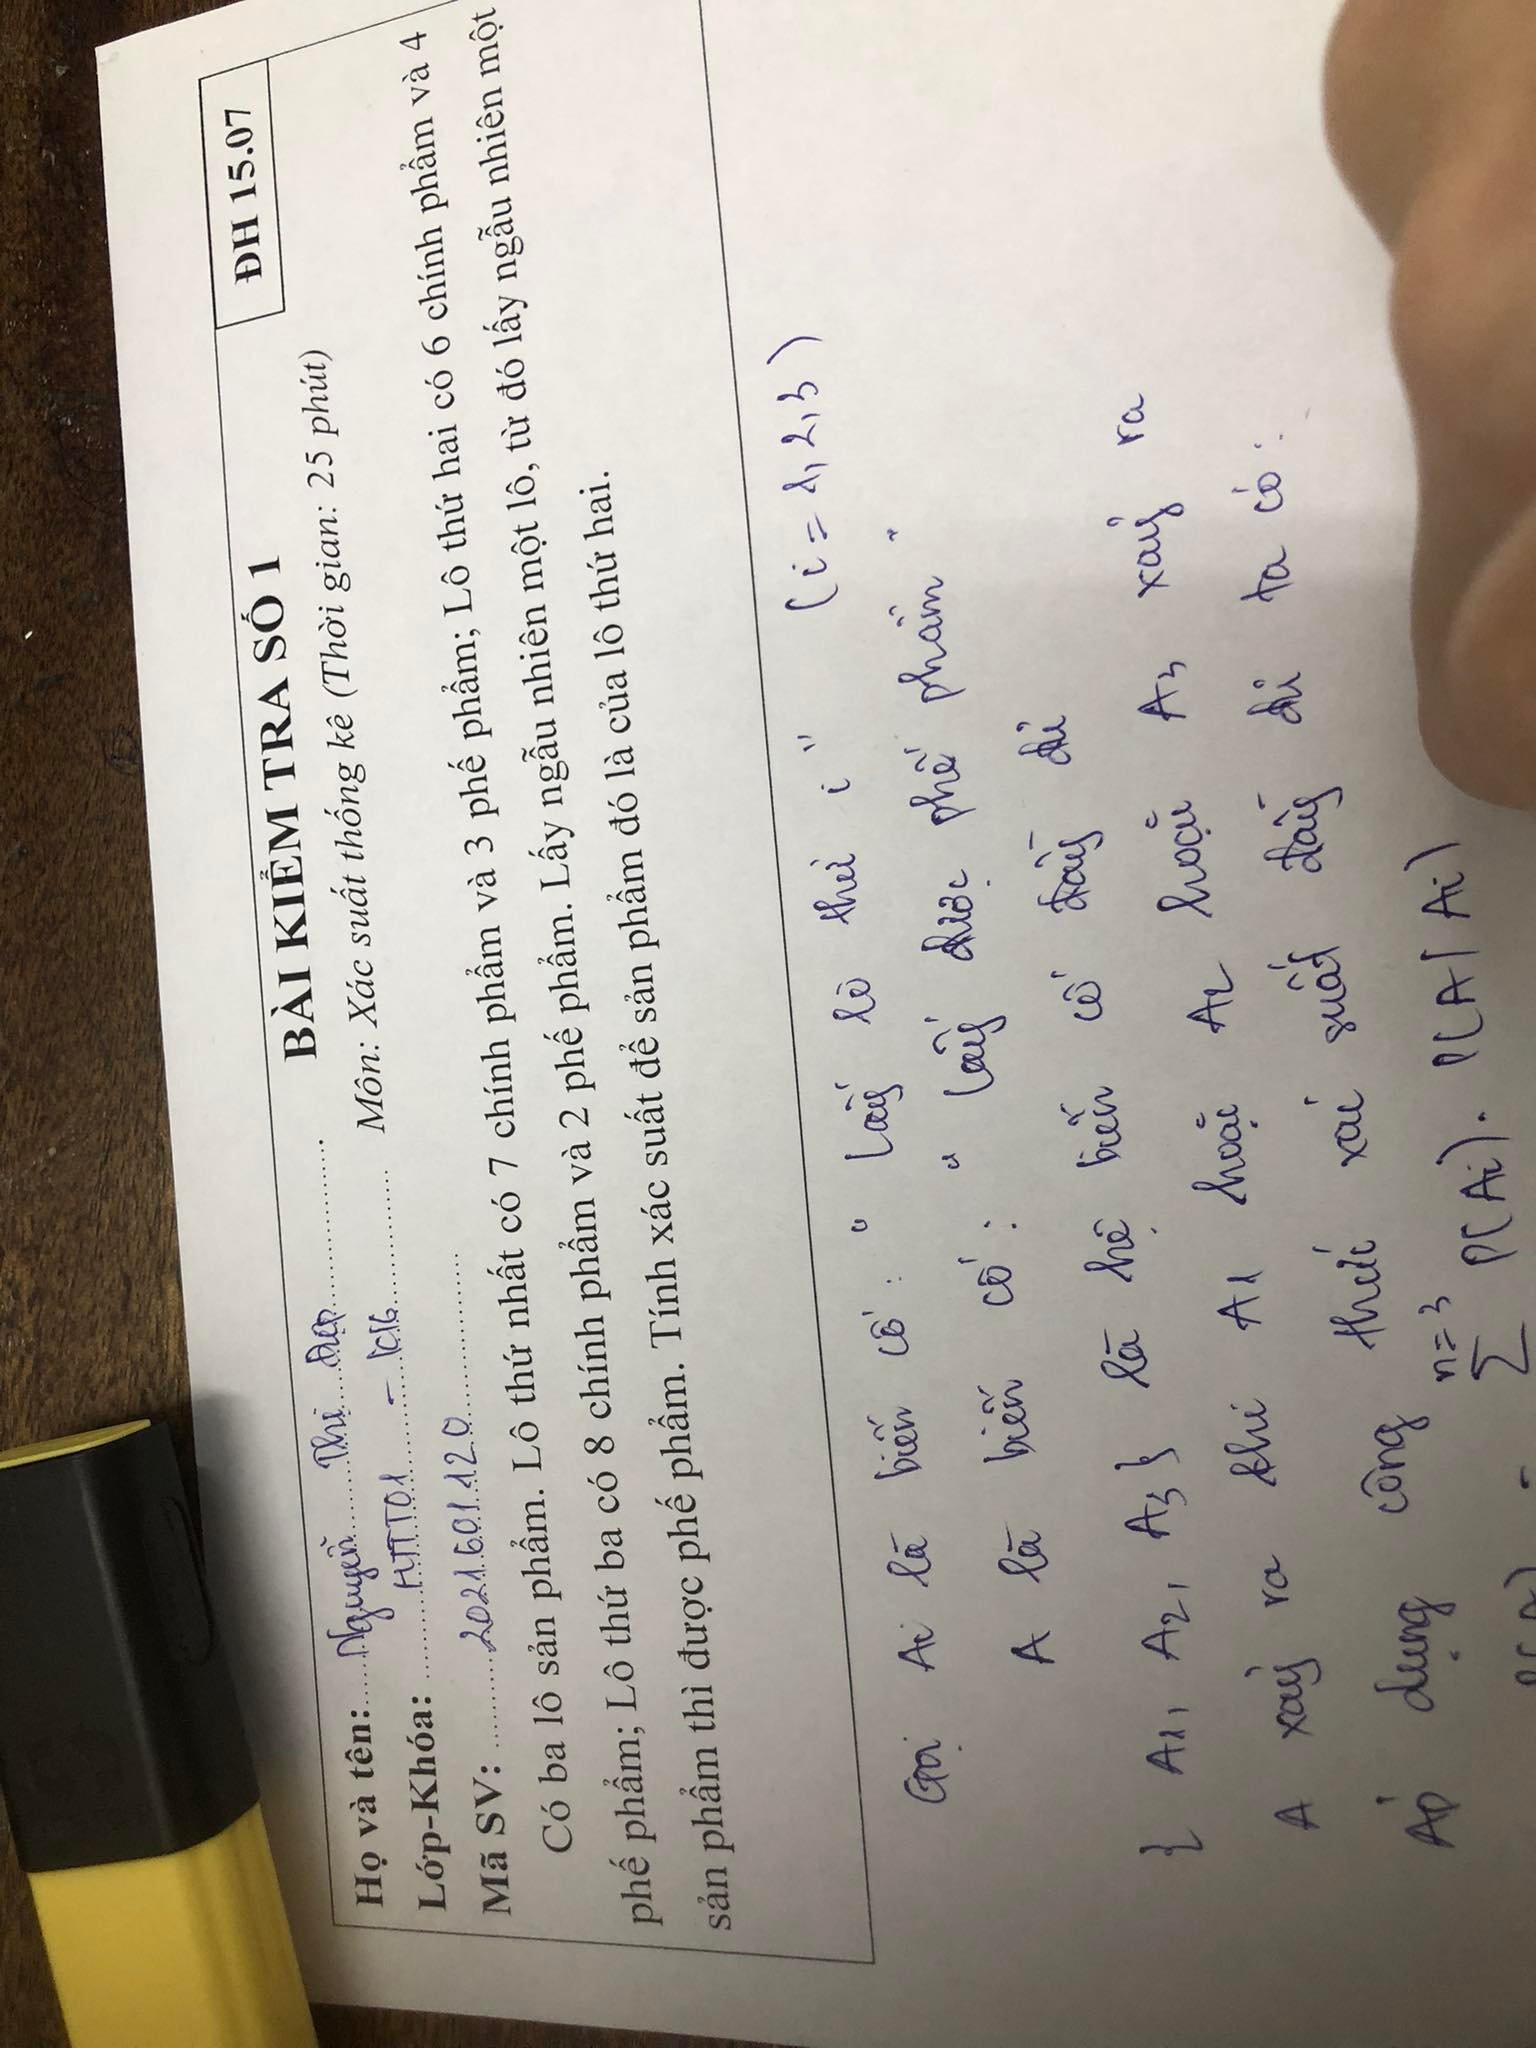 ĐH 15.07
BÀI KIỂM TRA SỐ 1
Môn: Xác suất thống kê (Thời gian: 25 phút)
Họ và tên: Nguyễn Thị Đẹp
Lớp-Khóa: HTTT01 - K16
Mã SV: 2021601120
Có ba lô sản phẩm. Lô thứ nhất có 7 chính phẩm và 3 phế phẩm; Lô thứ hai có 6 chính phẩm và 4
phế phẩm; Lô thứ ba có 8 chính phẩm và 2 phế phẩm. Lấy ngẫu nhiên một lô, từ đó lấy ngẫu nhiên một
sản phẩm thì được phế phẩm. Tính xác suất để sản phẩm đó là của lô thứ hai.
Gọi Ai là biến cố: " Lấy lô thứ i " (i = 1, 2, 3)
A là biến cố: " Lấy được phế phẩm "
{ A1, A2, A3 } là hệ biến cố đầy đủ
A xảy ra khi A1 hoặc A2 hoặc A3 xảy ra
Áp dụng công thức xác suất đầy đủ ta có:
n=3
∑ P(Ai). P(A| Ai)